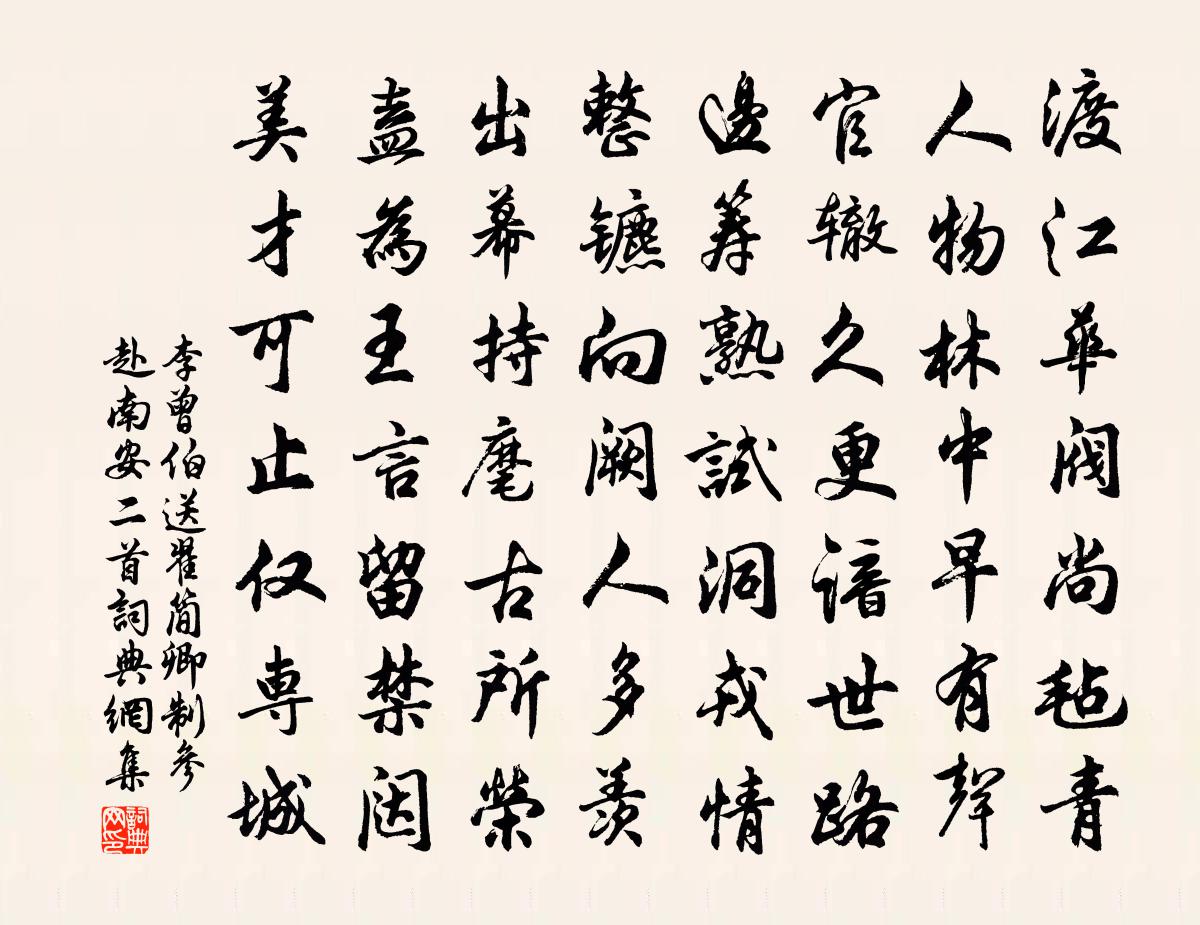 渡江華閥尚毡青
人物林中早有聲
官辙久更谙世路
邊筹熟試洞戎情
整镳向阙人多羨
出幕持麾古所榮
盍為王言留禁闼
美才可止仅専城
李曾伯送翟簡卿制參
赴南安二首詞典網集
詞典
网印